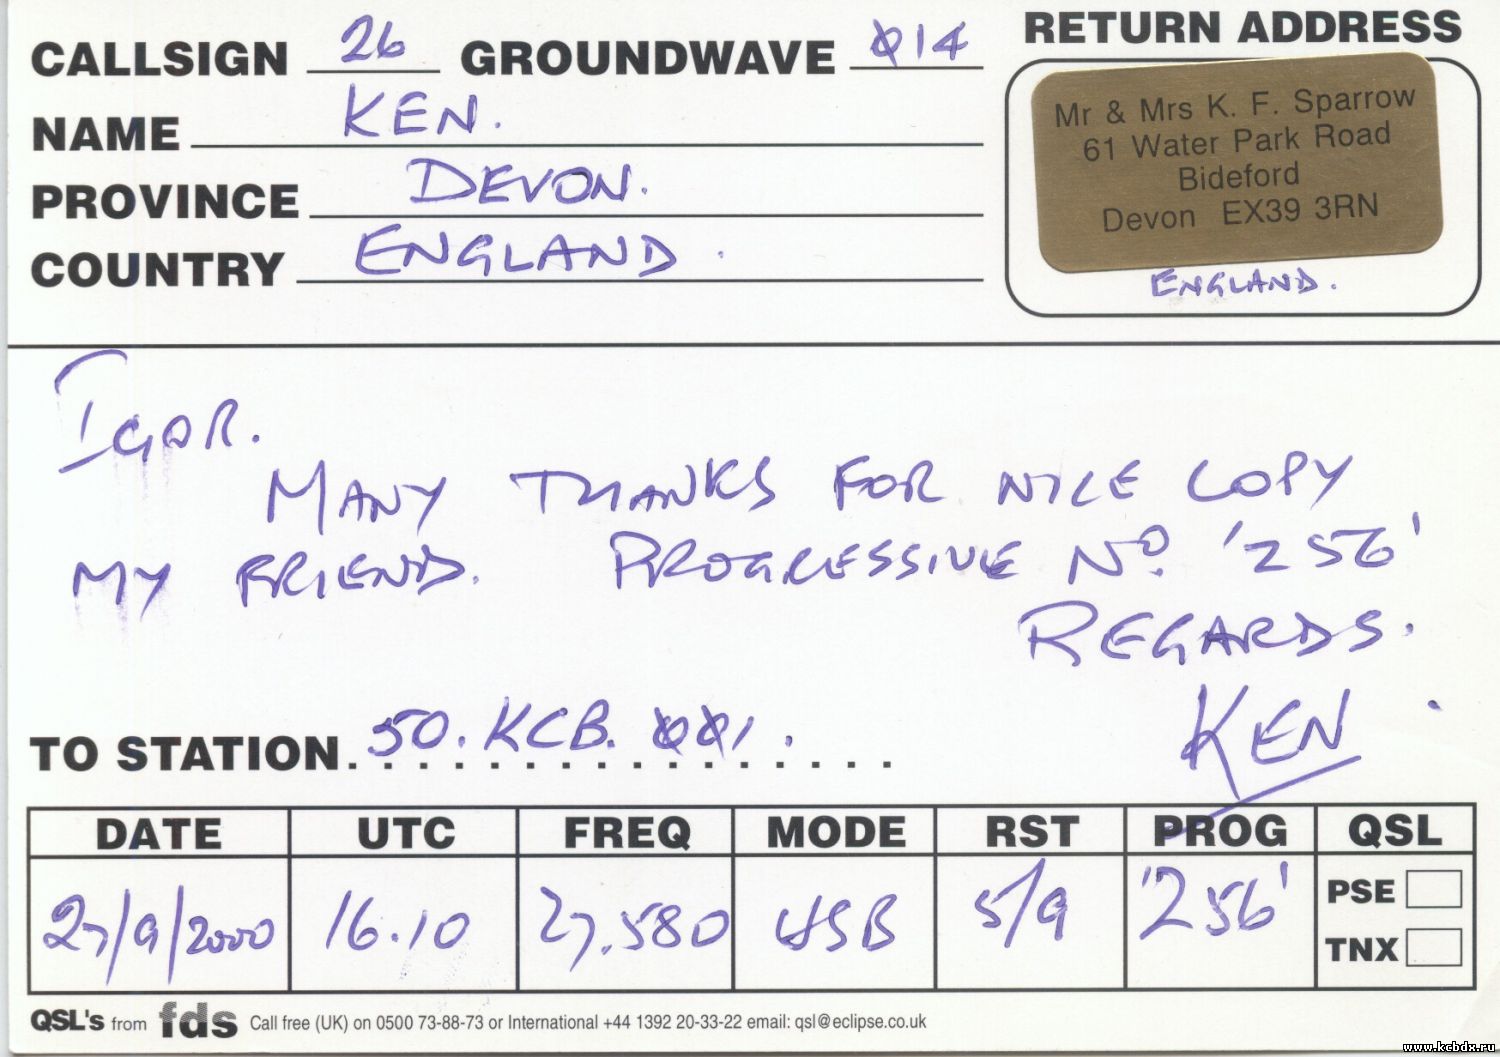 CALLSIGN 26 GROUNDWAVE 014
NAME KEN.
PROVINCE DEVON.
COUNTRY ENGLAND.
RETURN ADDRESS
Mr & Mrs K. F. Sparrow
61 Water Park Road
Bideford
Devon EX39 3RN
ENGLAND.
IGOR.
MANY THANKS FOR NICE COPY
MY FRIEND. PROGRESSIVE No. '256'
REGARDS.
KEN
TO STATION 50.KCB.001.
DATE UTC FREQ MODE RST PROG QSL
27/9/2000 16.10 27.580 USB 5/9 '256' PSE
TNX
QSL's from fds Call free (UK) on 0500 73-88-73 or International +44 1392 20-33-22 email: qsl@eclipse.co.uk
www.kcbdx.ru